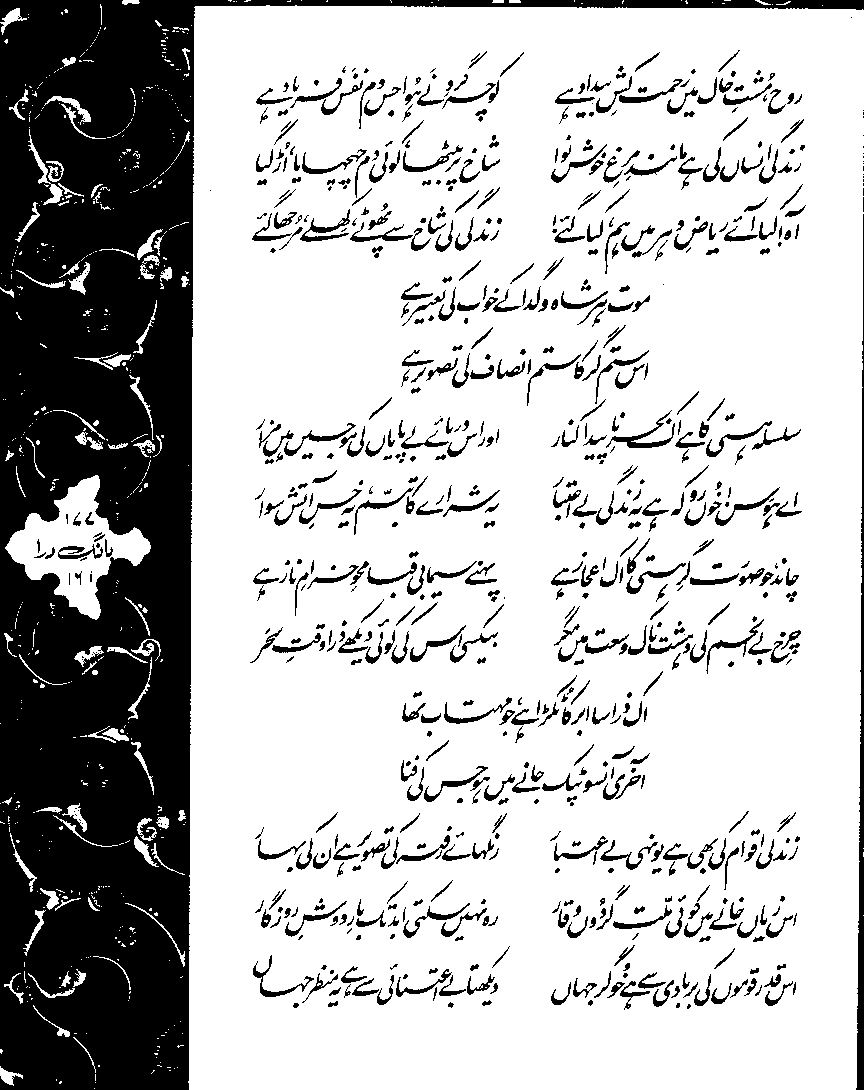 روح، مُشتِ خاک میں زحمت کشِ بیداد ہے کوچہ گردِ نَے ہُوا جس دم نفَس، فریاد ہے
زندگی انساں کی ہے مانندِ مرغِ خوش نوا شاخ پر بیٹھا، کوئی دم چہچہایا، اُڑ گیا
آہ! کیا آئے ریاضِ دہر میں ہم، کیا گئے! زندگی کی شاخ سے پھُوٹے، کھِلے، مُرجھا گئے
موت ہر شاہ و گدا کے خواب کی تعبیر ہے
اس ستم گر کا ستم انصاف کی تصویر ہے
سلسلہ ہستی کا ہے اک بحرِ ناپیدا کنار اور اس دریائے بے پایاں کی موجیں ہیں مزار
اے ہَوس! خُوں رو کہ ہے یہ زندگی بے اعتبار یہ شرارے کا تبسّم، یہ خسِ آتش سوار
چاند، جو صورت گرِ ہستی کا اک اعجاز ہے پہنے سیمابی قبا محوِ خرامِ ناز ہے
چرخِ بے انجم کی دہشت ناک وسعت میں مگر بیکسی اس کی کوئی دیکھے ذرا وقتِ سحَر
اک ذرا سا ابر کا ٹکڑا ہے، جو مہتاب تھا
آخری آنسو ٹپک جانے میں ہو جس کی فنا
زندگی اقوام کی بھی ہے یونہی بے اعتبار رنگہائے رفتہ کی تصویر ہے ان کی بہار
اس زیاں خانے میں کوئی ملّتِ گردُوں وقار رہ نہیں سکتی ابد تک بارِ دوشِ روزگار
اس قدر قوموں کی بربادی سے ہے خُوگر جہاں دیکھتا بے اعتنائی سے ہے یہ منظر جہاں
۱۷۷
بانگِ درا
۱۶۱